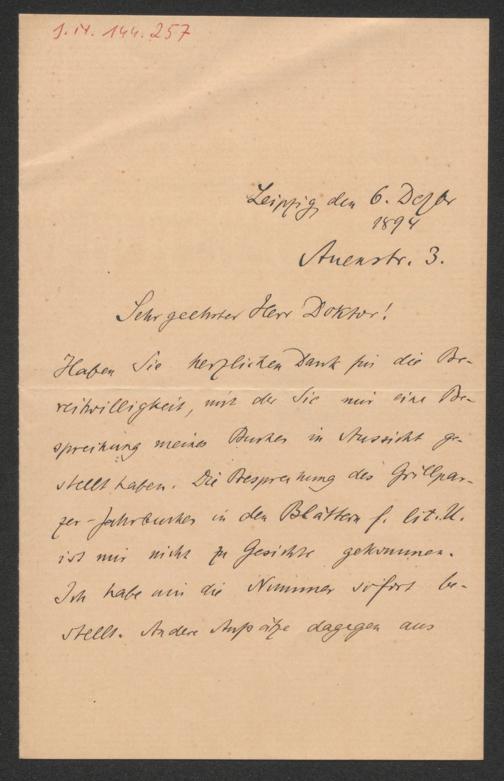 J.N. 144.257
Leipzig, den 6. Dezbr
1894
Auenstr. 3.
Sehr geehrter Herr Doktor!
Haben Sie herzlichen Dank für die Be-
reitwilligkeit, mit der Sie mir eine Be-
sprechung meines Buches in Aussicht ge-
stellt haben. Die Besprechung des Grillpar-
zer-Jahrbuches in den Blättern f. lit. U.
ist mir nicht zu Gesichte gekommen.
Ich habe mir die Nummer sofort be-
stellt. Andere Aufsätze dagegen aus